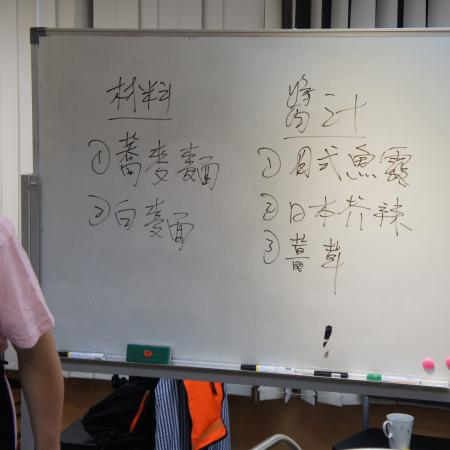 材料
①蕎麥麵
②白麥面
醬汁
①日式魚露
②日本芥辣
③
!